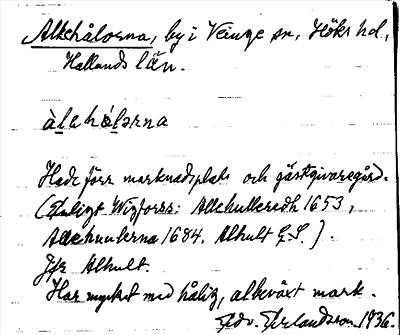 Allehålorna, by i Veinge sn, Höks hd,
Hallands län.
àlehålərna
Hade förr marknadsplats och gästgivaregård.
(Enligt Wigforss: Allehulleredh 1653,
Allehuulerna 1684. Alhult G.S.).
Jfr Alhult.
Har mycket med hålig, albeväxt mark.
Edv. Erlandsson 1936.